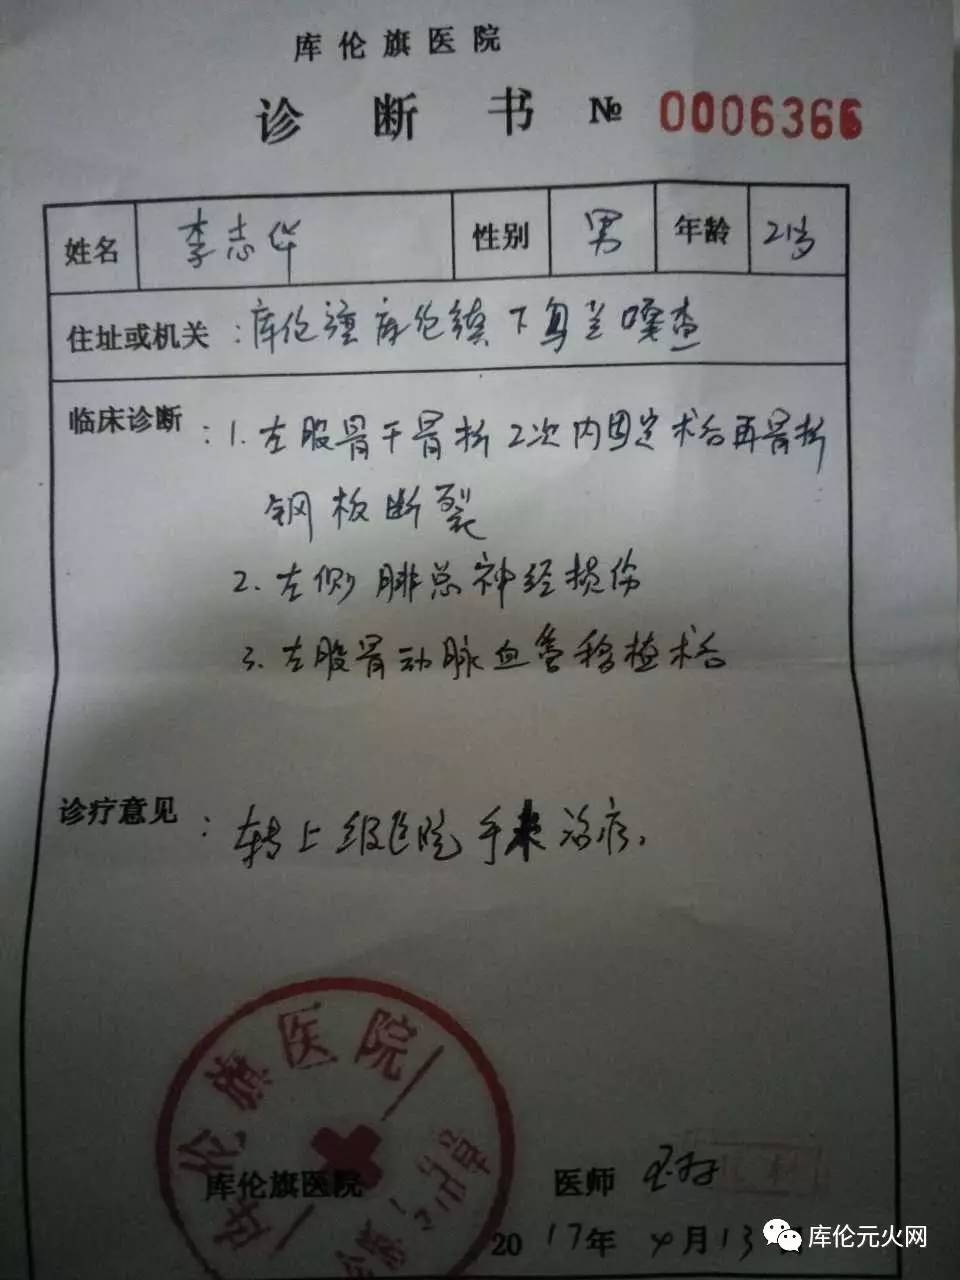 库伦旗医院
诊断书 № 0006366
姓名 李志华 性别 男 年龄 21岁
住址或机关：库伦镇下勿兰嘎查
临床诊断：1. 左股骨干骨折2次内固定术后再骨折
钢板断裂
2. 左侧腓总神经损伤
3. 左股骨动脉血管移植术后
诊疗意见：转上级医院手术治疗.
库伦旗医院
库伦旗医院 医师
2017年4月13日
库伦元火网